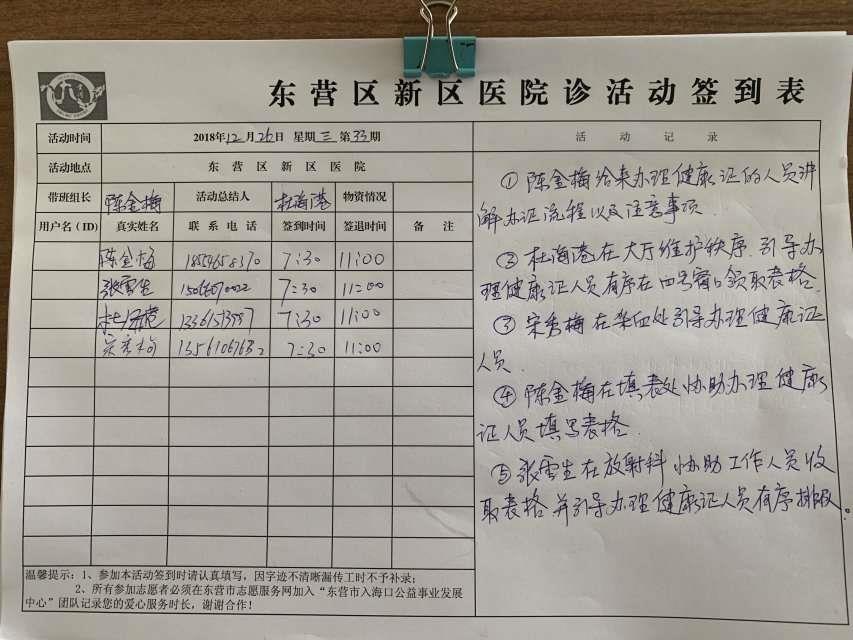 东营区新区医院诊活动签到表
活动时间 2018年12月26日 星期三 第33期 活动记录
活动地点 东营区新区医院
带班组长 陈金梅 活动总结人 杜海港 物资情况
用户名(ID) 真实姓名 联系电话 签到时间 签退时间 备注
陈金梅 7:30 11:00
张雪生 7:30 11:00
杜海港 7:30 11:00
宋秀梅 7:30 11:00
①陈金梅给来办理健康证的人员讲
解办证流程以及注意事项.
②杜海港在大厅维护秩序.引导办
理健康证人员有序在四号窗口领取表格.
③宋秀梅在采血处引导办理健康证
人员.
④陈金梅在填表处协助办理健康
证人员填写表格.
⑤张雪生在放射科协助工作人员收
取表格并引导办理健康证人员有序排队。
温馨提示：1、参加本活动签到时请认真填写，因字迹不清晰漏传工时不予补录；
2、所有参加志愿者必须在东营市志愿服务网加入“东营市入海口公益事业发展
中心”团队记录您的爱心服务时长，谢谢合作！